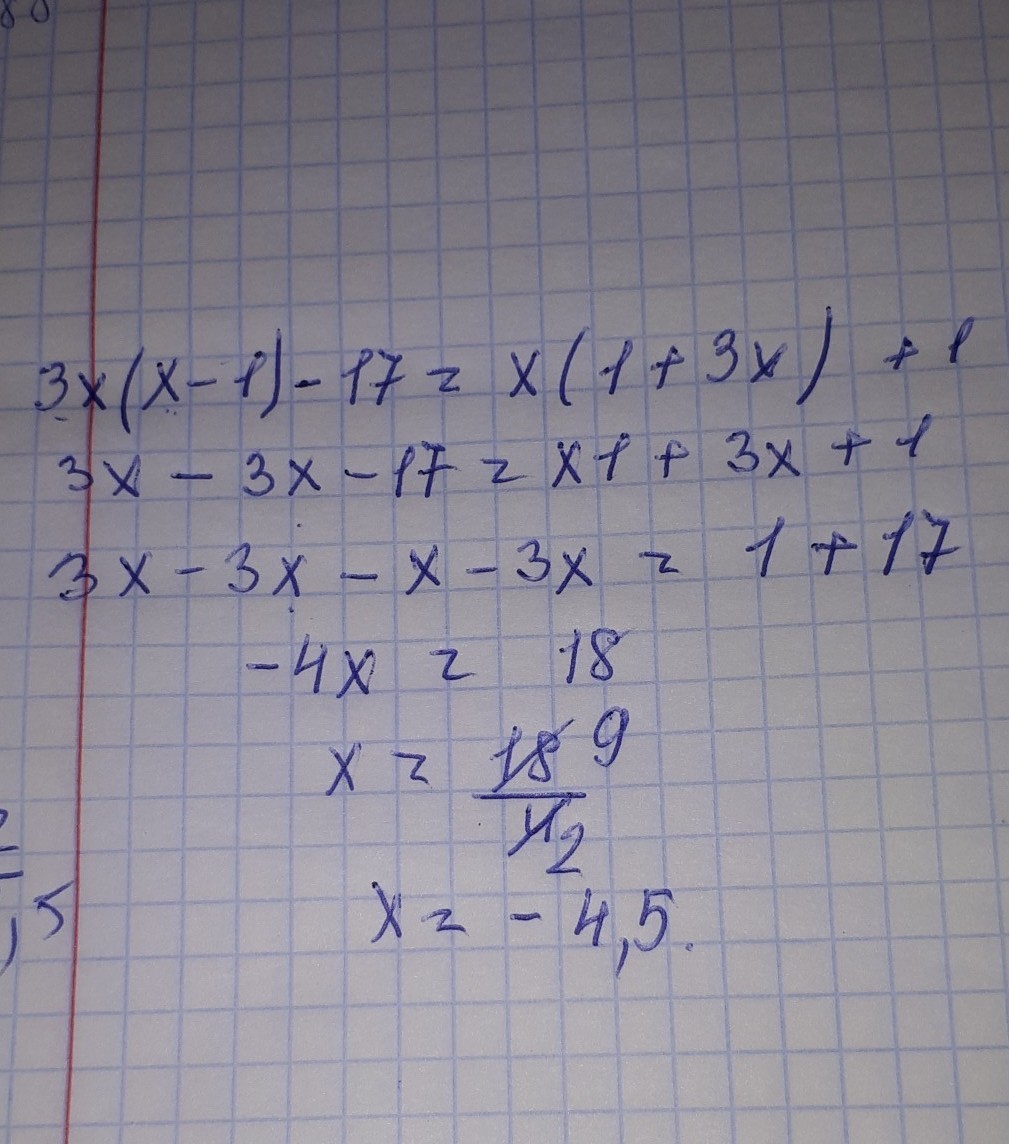 80
3x(x-1)-17=x(1+3x)+1
3x-3x-17=x1+3x+1
3x-3x-x-3x=1+17
-4x=18
x=18/4 9/2
,5
x=-4,5.